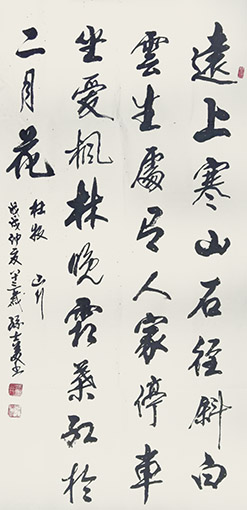 遠上寒山石徑斜白
雲生處有人家停車
坐愛楓林晚霜葉紅於
二月花
杜牧 山行
戊戌仲夏